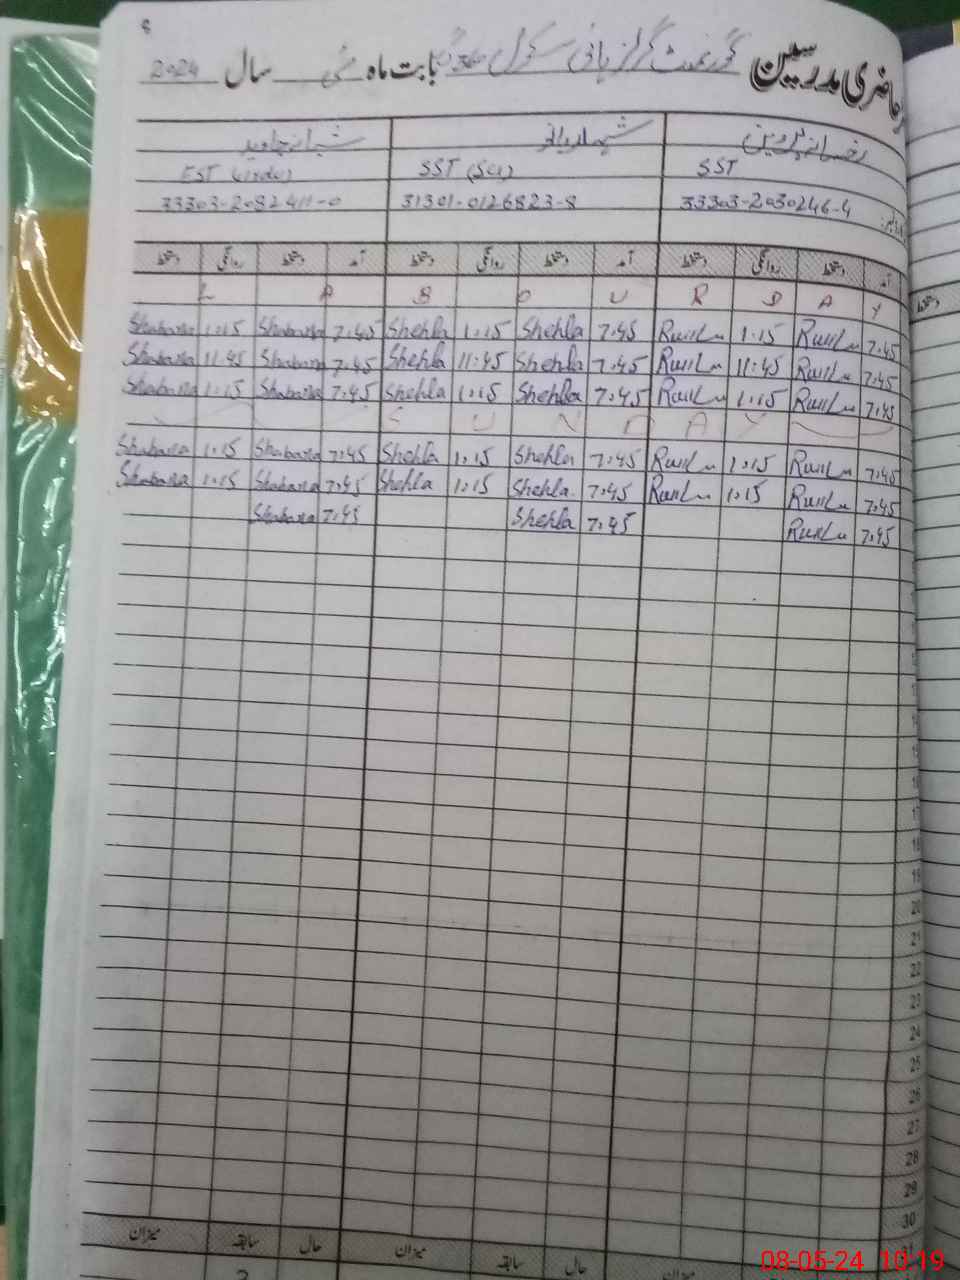 8
رجسٹر حاضری مدرسین گورنمنٹ گرلز ہائی سکول بابت ماہ مئی سال 2024
رخسانہ پروین شہلا ربانی شبانہ جاوید
SST SST (Sci) EST (Urdu)
33303-2030246-4 31301-0126823-8 33303-2082411-0
آمد دستخط روانگی دستخط آمد دستخط روانگی دستخط آمد دستخط روانگی دستخط
L A B O U R D A Y
Shabana 1:15 Shabana 7:45 Shehla 1:15 Shehla 7:45 1:15 7:45
Shabana 11:45 Shabana 7:45 Shehla 11:45 Shehla 7:45 11:45 7:45
Shabana 1:15 Shabana 7:45 Shehla 1:15 Shehla 7:45 1:15 7:45
S U N D A Y
Shabana 1:15 Shabana 7:45 Shehla 1:15 Shehla 7:45 1:15 7:45
Shabana 1:15 Shabana 7:45 Shehla 1:15 Shehla 7:45 1:15 7:45
Shabana 7:45 Shehla 7:45 7:45
17
18
19
20
21
22
23
24
25
26
27
28
29
30
میزان حال سابقہ میزان حال سابقہ میزان
08-05-24 10:19